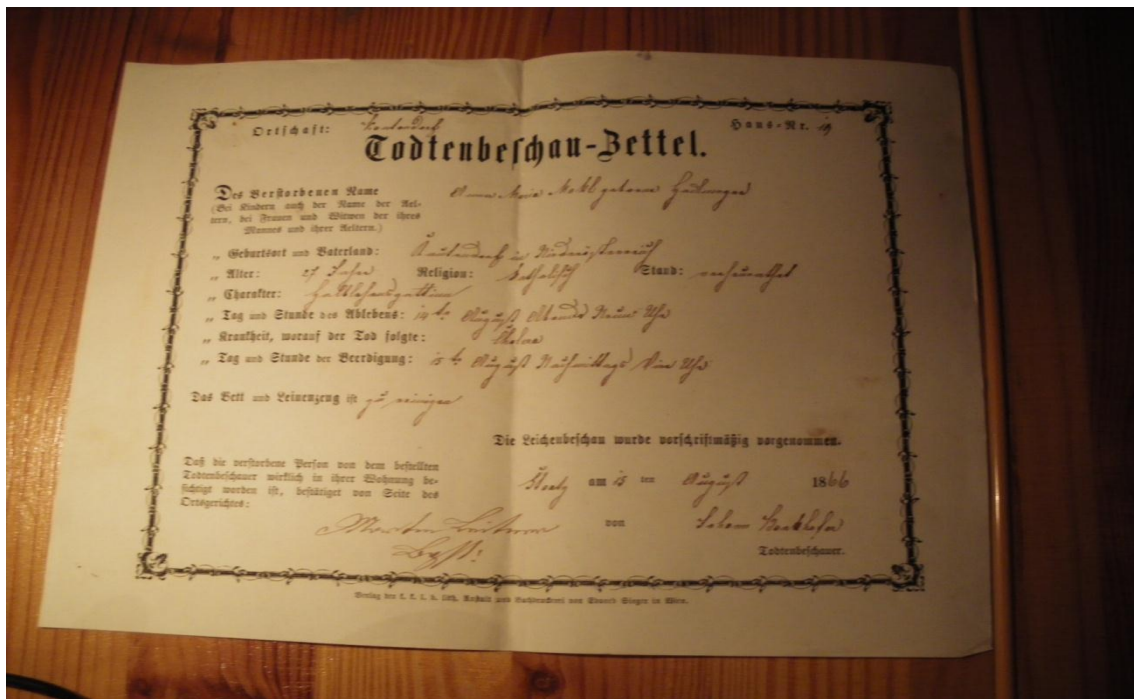 Ortschaft: Kautendorf Haus-Nr. 19
Todtenbeschau-Zettel.
Des Verstorbenen Name Anna Maria geborne
(Bei Kindern auch der Name der Ael-
tern, bei Frauen und Witwen der ihres
Mannes und ihrer Aeltern.)
„ Geburtsort und Vaterland: Kautendorf in Niederösterreich
„ Alter: 27 Jahre Religion: katholisch Stand: verheurathet
„ Charakter: Halblehensgattinn
„ Tag und Stunde des Ablebens: 14t. August Abends Neun Uhr
„ Krankheit, worauf der Tod folgte: Cholera
„ Tag und Stunde der Beerdigung: 15t. August Nachmittags Vier Uhr
Das Bett und Leinenzeug ist zu reinigen
Die Leichenbeschau wurde vorschriftmäßig vorgenommen.
Daß die verstorbene Person von dem bestellten
Todtenbeschauer wirklich in ihrer Wohnung be-
sichtigt worden ist, bestätiget von Seite des
Ortsgerichtes:
Staatz am 15 ten August 1866
Martin von Johann
Todtenbeschauer.
Verlag der k. k. l. b. lith. Anstalt und Buchdruckerei von Eduard Sieger in Wien.